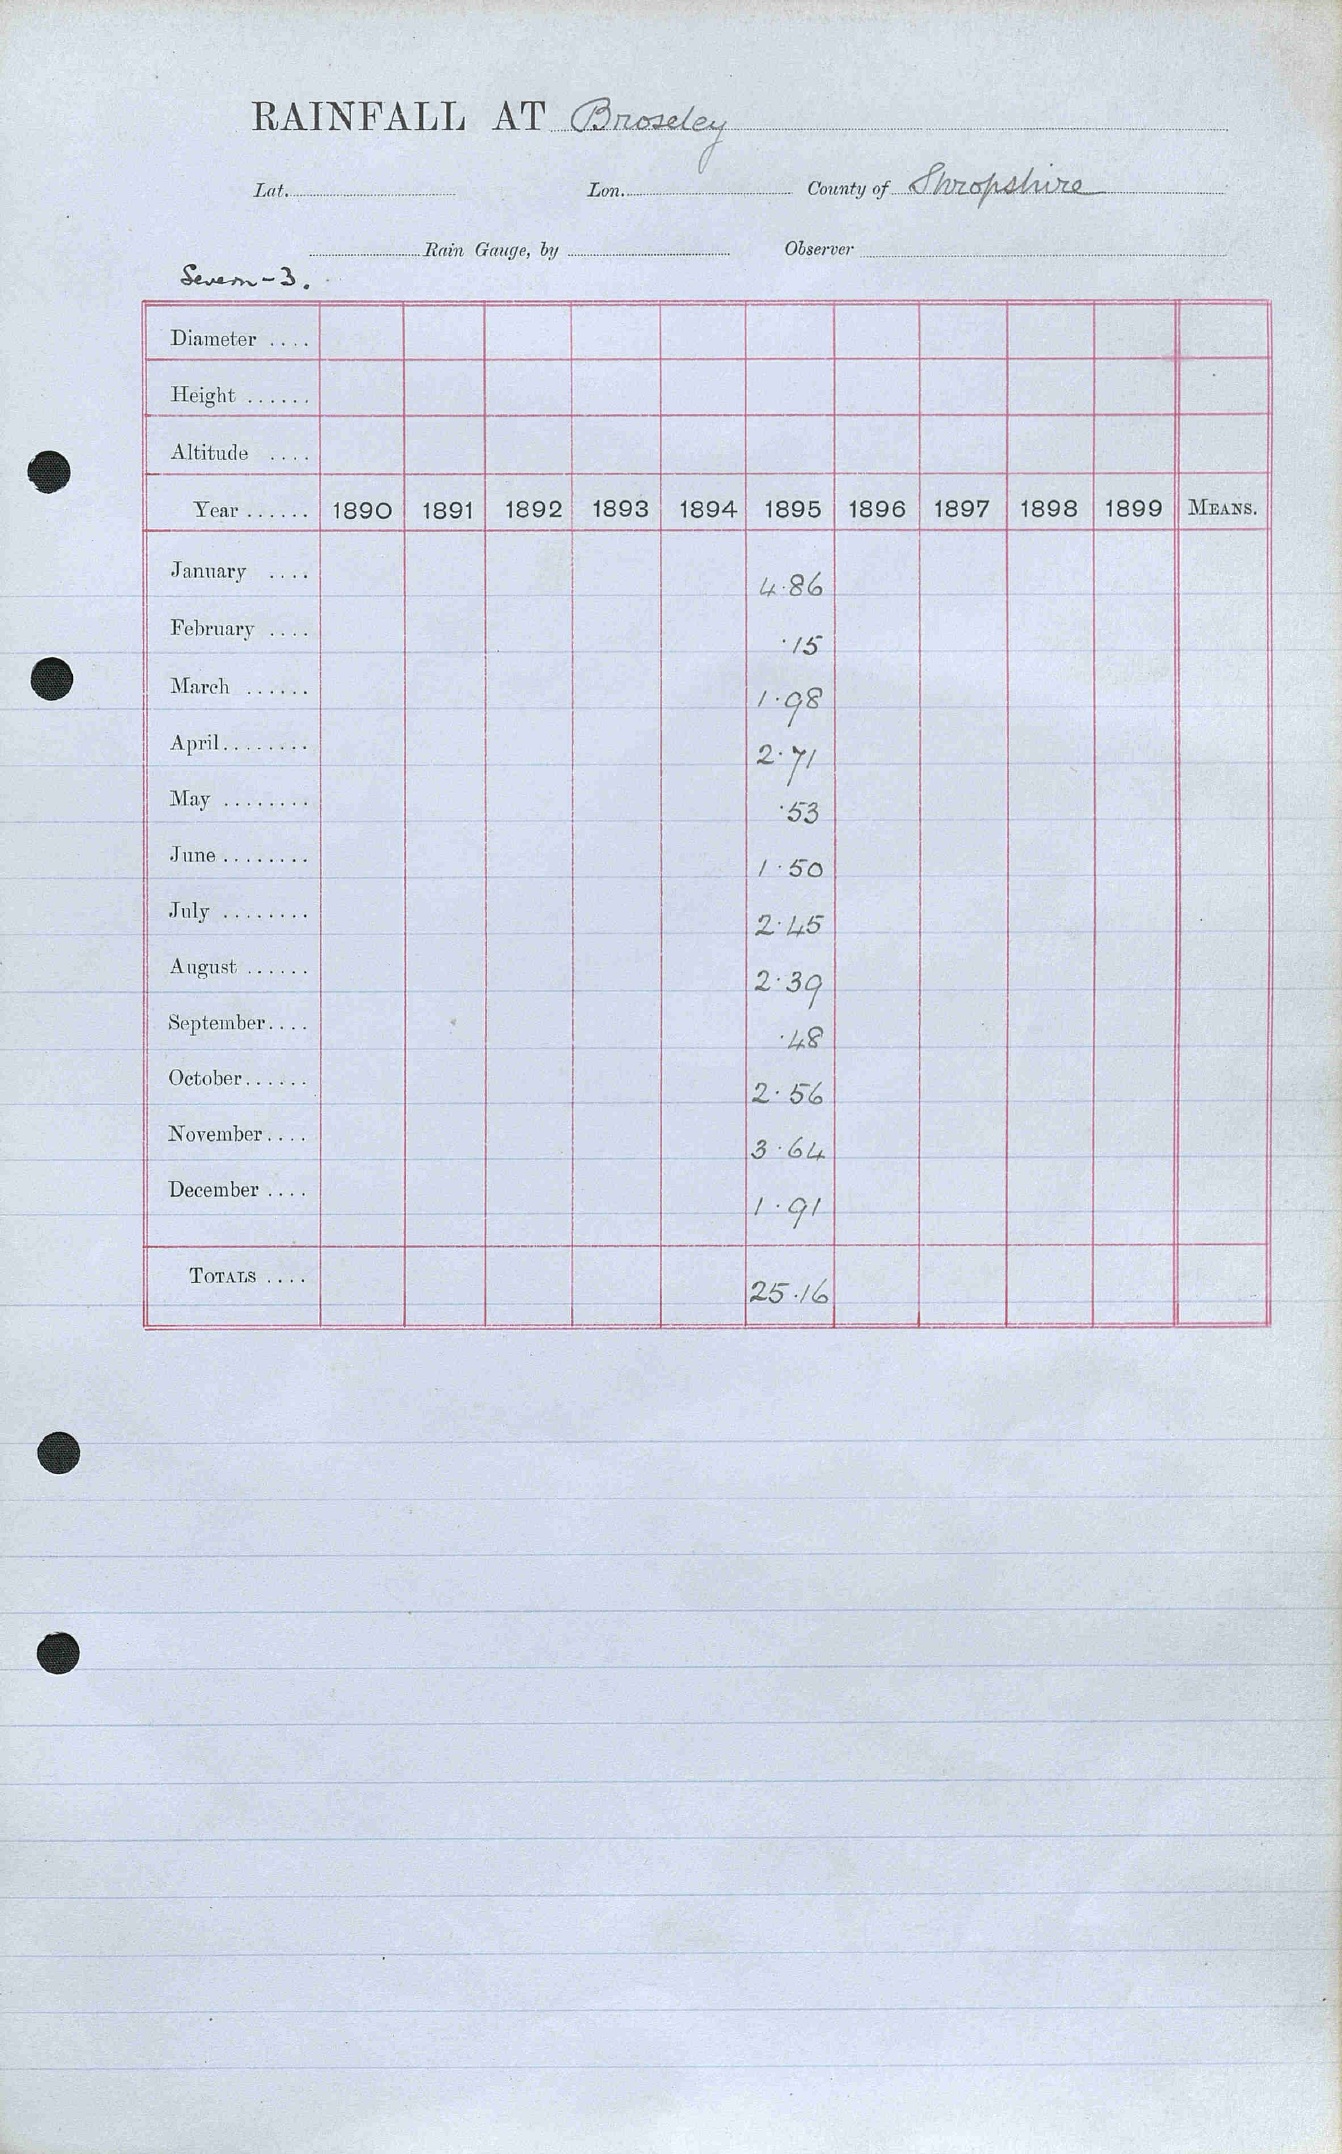 RAINFALL AT Broseley
Lat. Lon. County of Shropshire
Rain Gauge, by Observer
Severn-3.
Diameter ....
Height ......
Altitude ....
Year ...... 1890 1891 1892 1893 1894 1895 1896 1897 1898 1899 MEANS.
January .... 4.86
February .... .15
March ...... 1.98
April........ 2.71
May ........ .53
June ........ 1.50
July ........ 2.45
August ...... 2.39
September.... .48
October...... 2.56
November.... 3.64
December .... 1.91
TOTALS .... 25.16